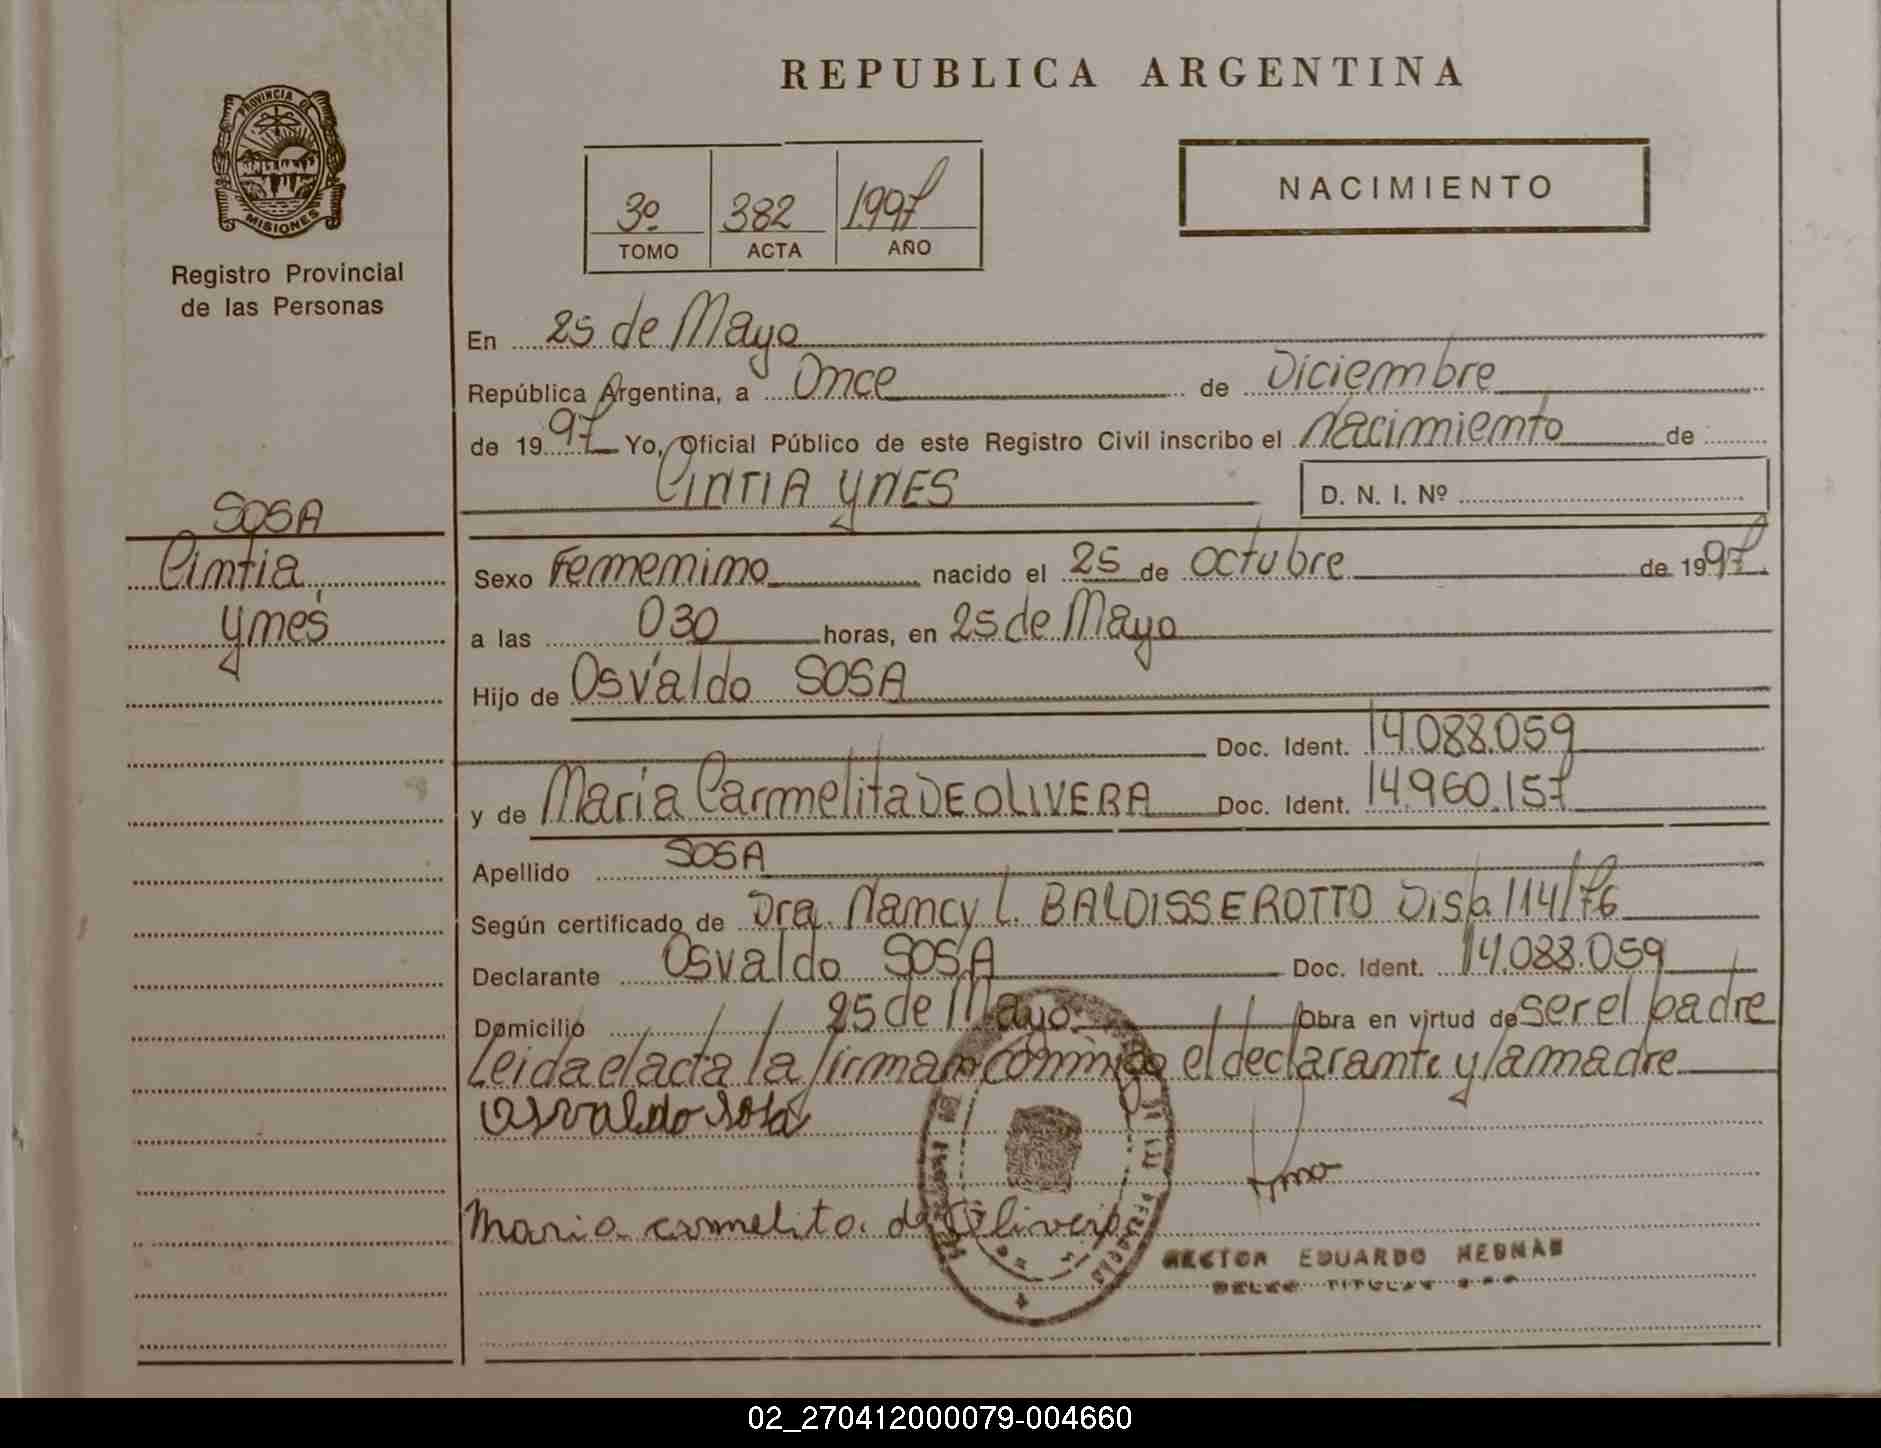 REPUBLICA ARGENTINA
PROVINCIA DE
MISIONES
Registro Provincial
de las Personas
3º 382 1.997
TOMO ACTA AÑO
NACIMIENTO
SOSA
Cintia
Ynés
En 25 de Mayo
República Argentina, a Once de Diciembre
de 1997 Yo, Oficial Público de este Registro Civil inscribo el Nacimiento de
CINTIA YNES D. N. I. Nº
Sexo Femenino nacido el 25 de Octubre de 1997
a las 030 horas, en 25 de Mayo
Hijo de Osvaldo SOSA
Doc. Ident. 14.088.059
y de Maria Carmelita DE OLIVERA Doc. Ident. 14.960.157
Apellido SOSA
Según certificado de Dra. Nancy L. BALDISSEROTTO Disp. 114/76
Declarante Osvaldo SOSA Doc. Ident. 14.088.059
Domicilio 25 de Mayo Obra en virtud de ser el padre
Leida el acta la firman conmigo el declarante y la madre
Osvaldo Sosa
Maria carmelita de Olivera
HECTOR EDUARDO
TITULAR
02_270412000079-004660